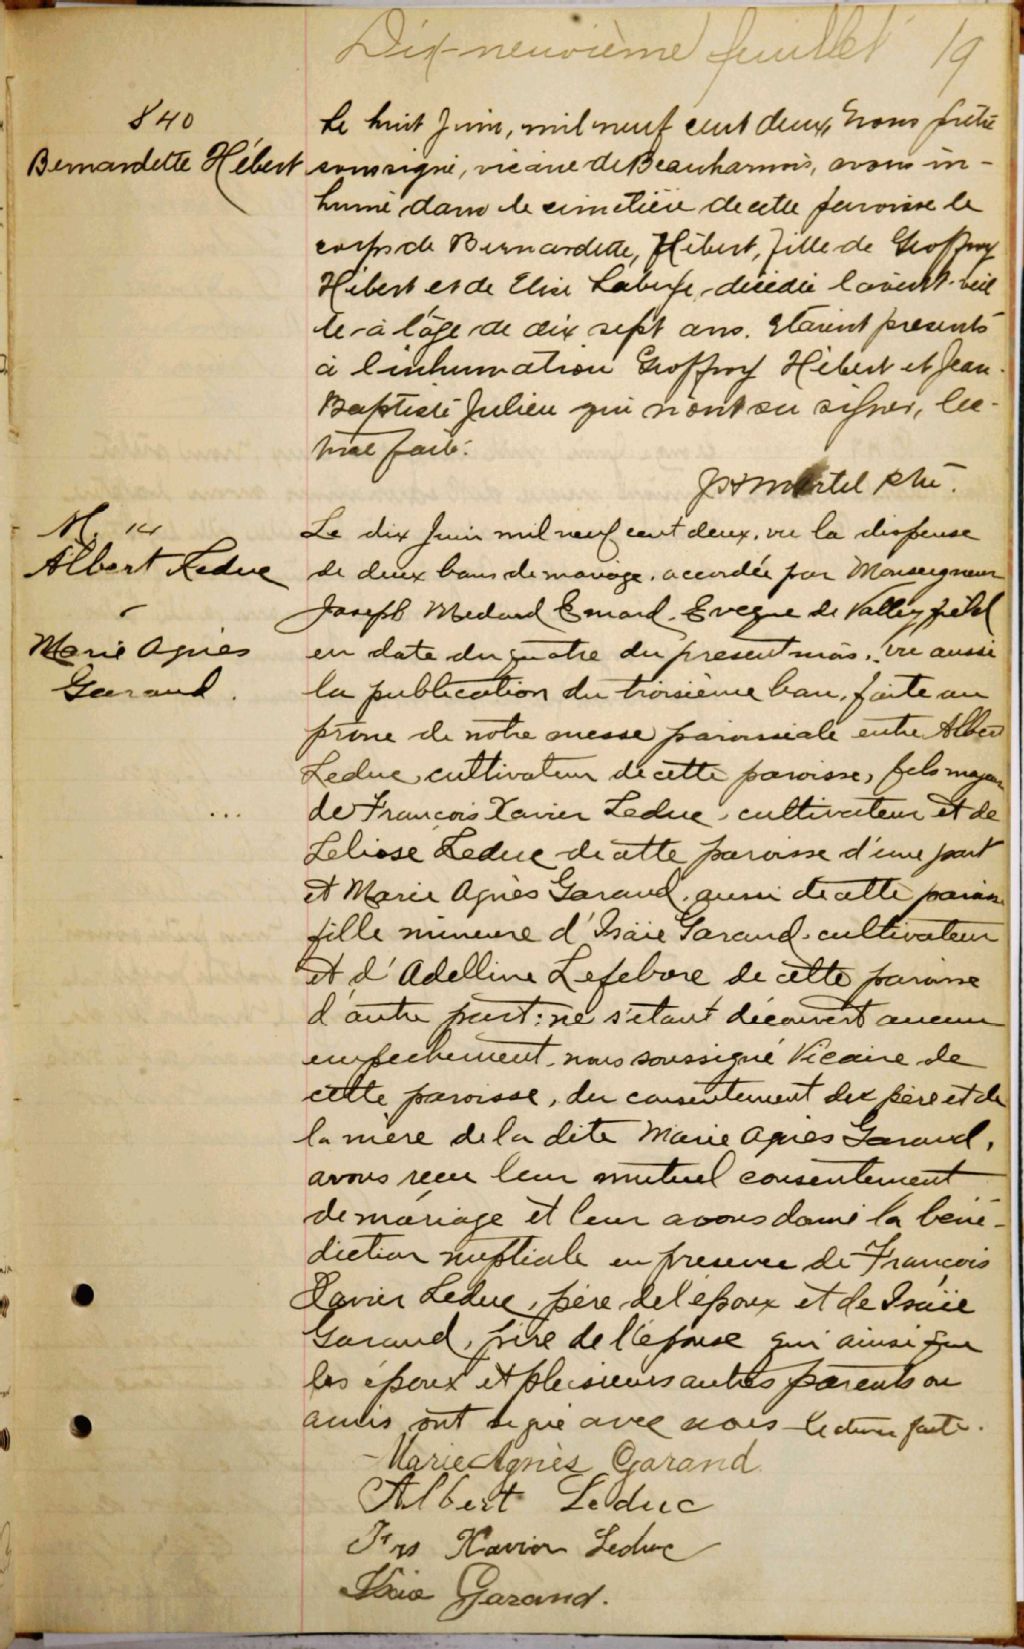 Dix-neuvième feuillet 19
840
Bernardette Hébert
Le huit Juin, mil neuf cent deux, nous prêtre
soussigné, vicaire de Beauharnois, avons in-
humé dans le cimetière de cette paroisse le
corps de Bernardette, Hébert, fille de Geoffroy
Hébert et de Elise Laberge, décédée l'avant-veil
le à l'âge de dix sept ans. Etaient présents
à l'inhumation Geoffroy Hébert et Jean-
Baptiste Julien qui n'ont su signer, lec-
ture faite.
Martel Ptre.
M. 14
Albert Leduc
Marie Agnès
Garand.
Le dix Juin mil neuf cent deux, vu la dispense
de deux bans de mariage, accordée par Monseigneur
Joseph Medard Emard, Evêque de Valleyfield
en date du quatre du présent mois, vu aussi
la publication du troisième ban, faite au
prône de notre messe paroissiale entre Albert
Leduc, cultivateur de cette paroisse, fils majeur
de François Xavier Leduc, cultivateur et de
Leduc de cette paroisse d'une part
et Marie Agnès Garand, aussi de cette paroisse
fille mineure d'Isaïe Garand, cultivateur
et d'Adelline Lefebvre de cette paroisse
d'autre part: ne s'étant découvert aucun
empêchement, nous soussigné Vicaire de
cette paroisse, du consentement des père et de
la mère de la dite Marie Agnès Garand,
avons reçu leur mutuel consentement
de mariage et leur avons donné la béné-
diction nuptiale en présence de François
Xavier Leduc, père de l'époux et de Isaïe
Garand, père de l'épouse qui ainsi que
les époux et plusieurs autres parents ou
amis ont signé avec nous lecture faite.
Marie Agnès Garand
Albert Leduc
Frs Xavier Leduc
Isaie Garand.